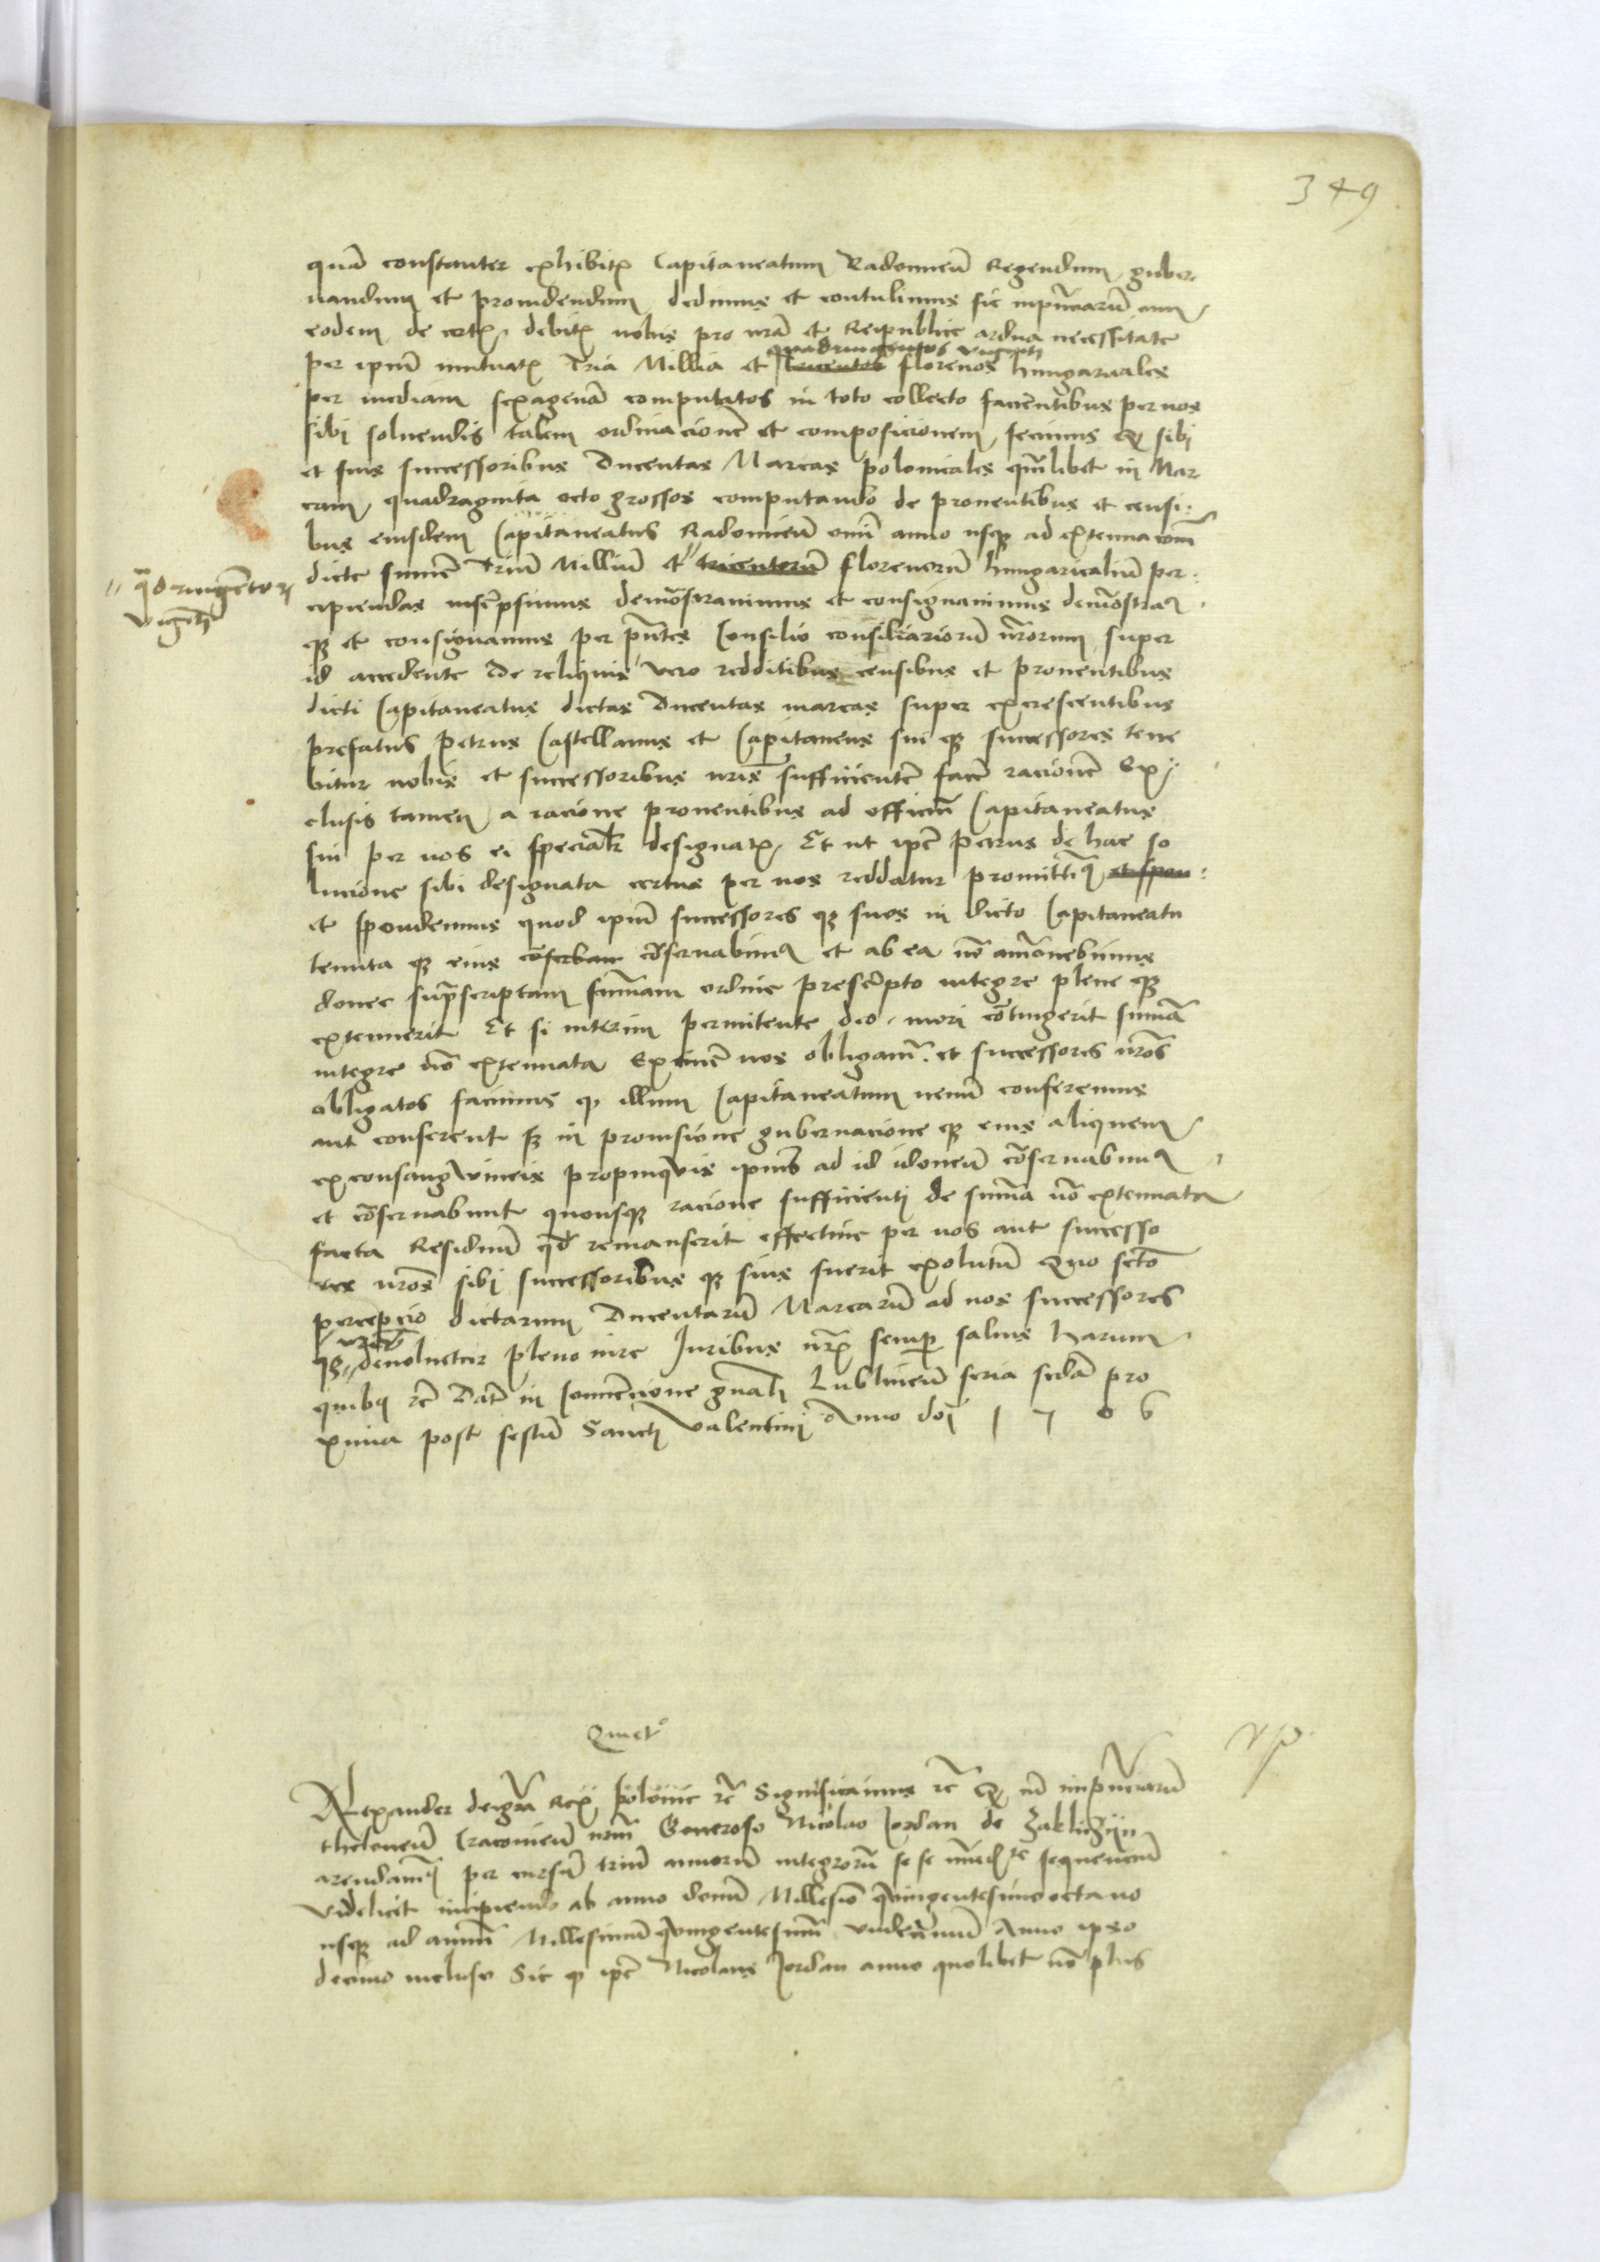 349
quam constanter exhibitis Capitaneatum Radomień Regendum guber-
nandum et prouidendum dedimus et contulimus sic inpñciarũ cum
eodem de certis debitis nobis pro nrã et Reipublice ardua necessitate
quadringentos viginti
per ipm̃ mutuatis Tria Millia et tricentos florenos hungaricales
per mediam sexagenã computatos in toto collecto facientibus per nos
sibi soluendis talem ordinacionẽ et composicionem fecimus q sibi
et suis successoribus Ducentas Marcas polonicales quãlibet in Mar
cam quadraginta octo grossos computando de prouentibus et censi-
bus eiusdem Capitaneatus Radomień omni anno usq ad extenuacionẽ
dicte summe Triũ Milliũ et tricentorũ florenorũ hungaricaliũ per-
quadringentor
viginti
cipiendas inscripsimus demõstrauimus et consignauimus demõstram
q et consignamus per pñtes Consilio consiliariorũ nrõrum super
id accedente De reliquis vero redditibus censibus et prouentibus
dicti Capitaneatus dictas Ducentas marcas super excrescentibus
prefatus Petrus Castellanus et Capitaneus sui q successores tene
bitur nobis et successoribus nris sufficientẽ facẽ racionẽ Ex-
clusis tamen a racione prouentibus ad officiũ Capitaneatus
sui per nos ei specialr designatis Et ut ipe Petrus de hac so
lucione sibi designata certus per nos reddatur promittimq et spon
et spondemus quod ipm̃ successores q suos in dicto Capitaneatu
tenuta q eius cõseruam cõseruabim et ab ea nõ amouebimus
donec suprascriptam summam ordine prescripto integre plene q
extenuerit Et si interim permitente deo mori cõtingerit summa
integre nõ extenuata Ex tunc nos obligam et successores nrõs
obligatos facimus q illum Capitaneatum nemi conferemus
aut conferent sz in prouisione gubernacione q eius aliquem
ex consangwineis propinquis ipius ad id idoneũ cõseruabim
et cõseruabunt quousq racione sufficienti de summa nõ extenuata
facta Residuũ qd remanserit effectiue per nos aut successo
res nrõs sibi successoribus q suis fuerit exolutũ Quo fcto
percepcio dictarum Ducentarũ Marcarũ ad nos successores
nros
q deuoluetur pleno iure Juribus nris semp saluis harum
quibq rc Datũ in Conuencione gnali Lublineń feria secda pro
xima post festũ Sancti Valentini Anno doi 1506
Quiet
Alexander dei gra Rex Polonie rc Significamus rc Q nũ inpñciarũ
theloneũ Cracouień nrũ Generoso Nicolao Jordan de Zaklyczyn
arendam per cursũ triũ annorũ integrorũ se se imediate sequenciũ
videlicet incipiendo ab anno domi Millesio qwingentesimo octauo
usq ad annũ Millesimũ qwingentesimũ vndecimũ Anno ipso
decimo incluso Sic q ipe Nicolaus Jordan anno quolibet nõ plus